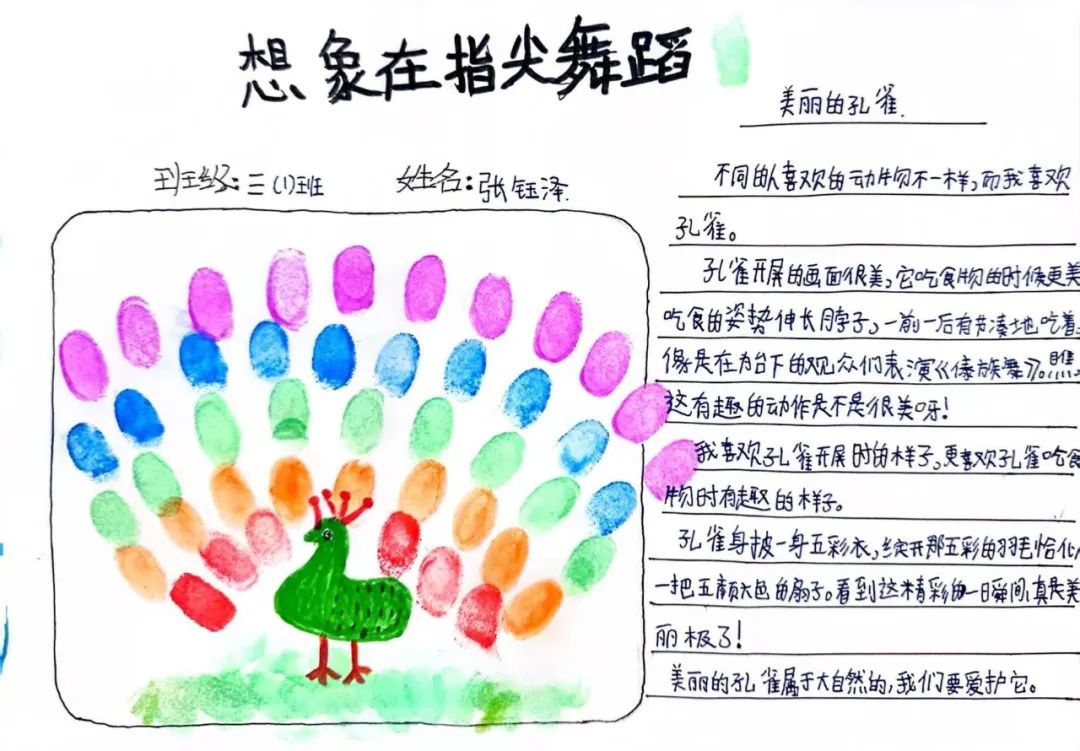 想象在指尖舞蹈
班级:三(1)班 姓名:张钰泽
美丽的孔雀.
不同的人喜欢的动物不一样,而我喜欢
孔雀。
孔雀开屏的画面很美,它吃食物的时候更美
吃食的姿势伸长脖子,一前一后有节凑地吃着
像是在为台下的观众们表演《傣族舞》。瞧
这有趣的动作是不是很美呀!
我喜欢孔雀开屏时的样子,更喜欢孔雀吃食
物时有趣的样子。
孔雀身披一身五彩衣,绽开那五彩的羽毛恰似
一把五颜六色的扇子。看到这精彩的一瞬间,真是美
丽极了!
美丽的孔雀属于大自然的,我们要爱护它。